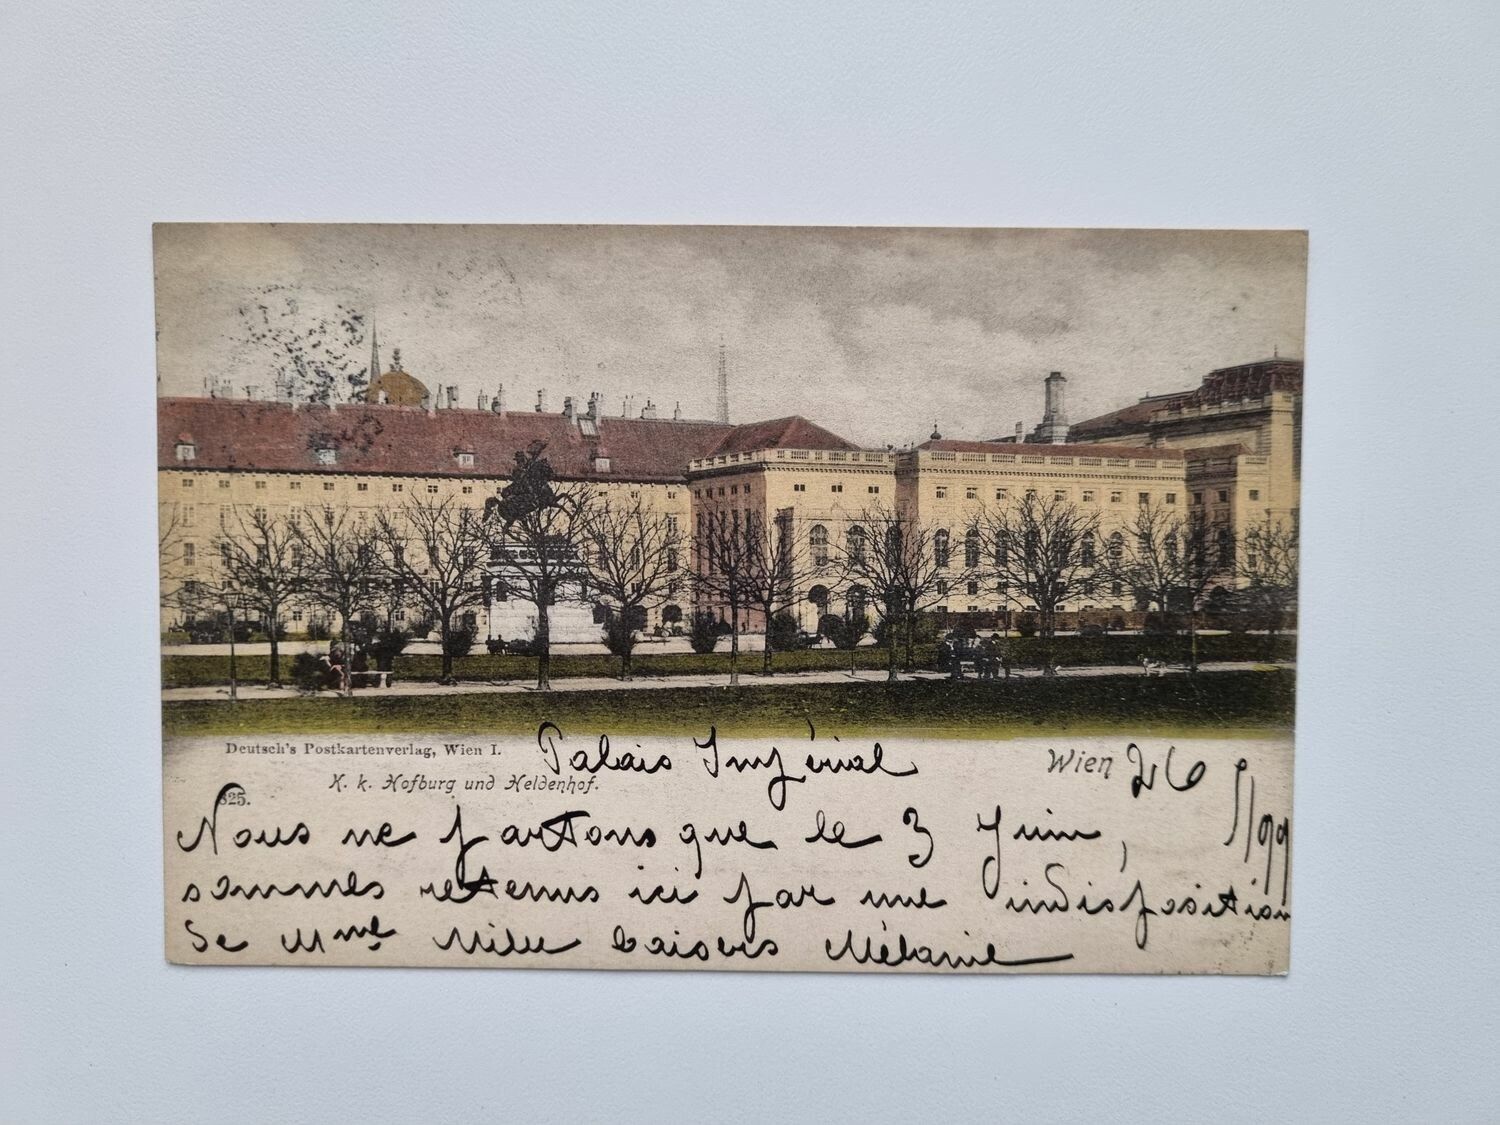 Deutsch's Postkartenverlag, Wien I. Palais Impérial Wien 26 5/99
K. k. Hofburg und Heldenhof.
825.
Nous ne partons que le 3 Juin,
sommes retenus ici par une indisposition
de Mme Mille baisers Mélanie